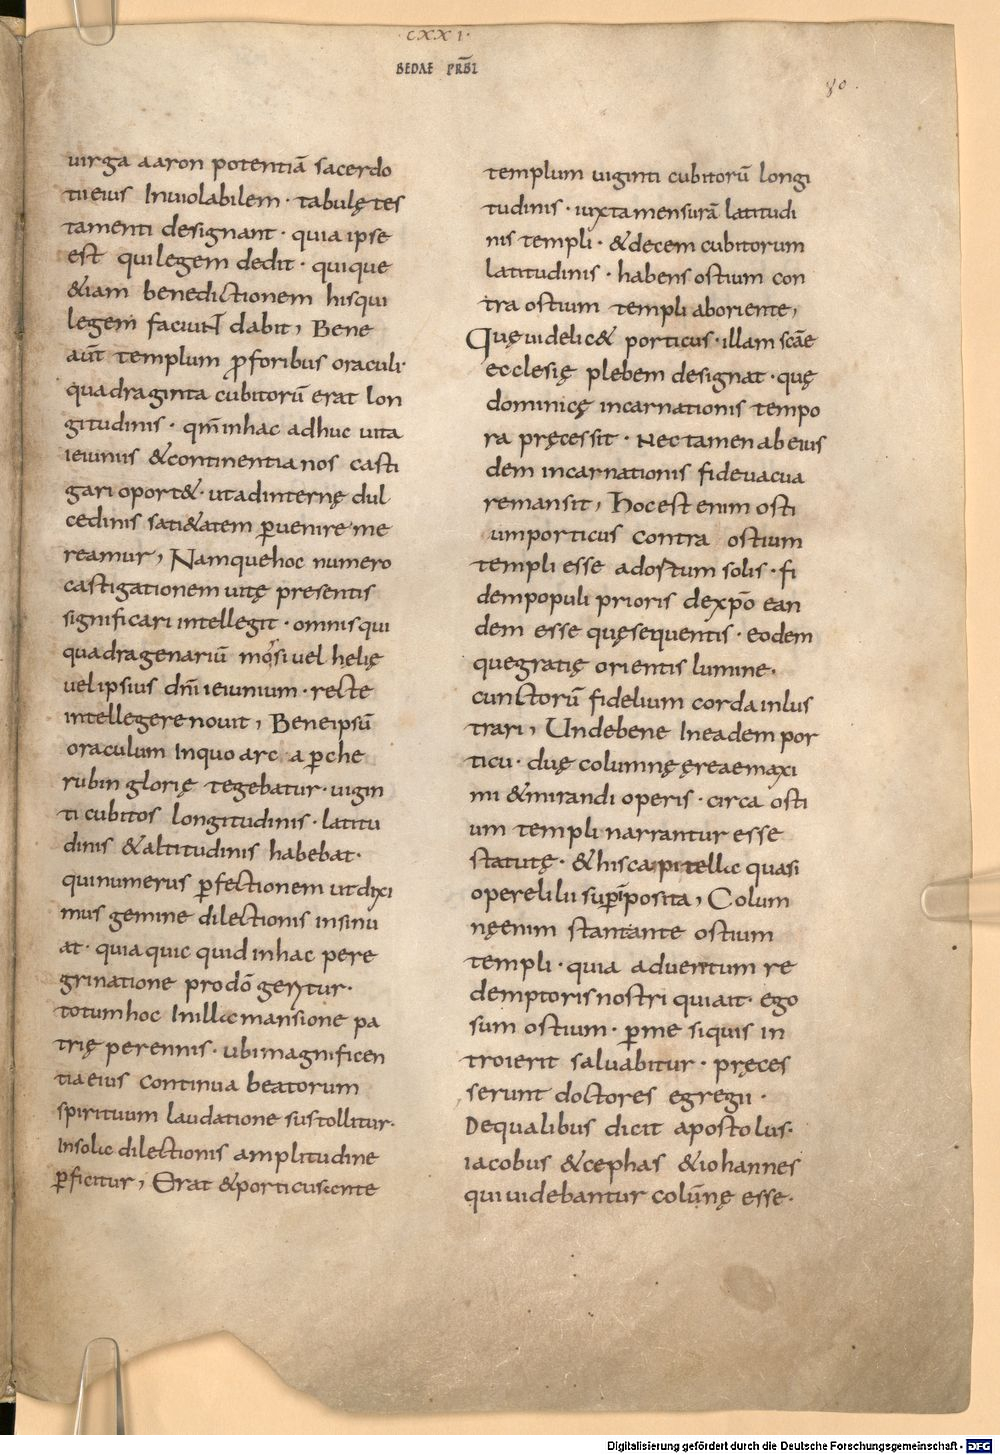 ·CXXI·
BEDAE PRB̅I
80.
uirga aaron potentiā sacerdo
tii eius Inuiolabilem · tabulę tes
tamenti designant · quia ipse
est qui legem dedit · quique
&iam benedictionem his qui
legem faciuNT dabit, Bene
aut̄ templum ꝓ foribus oraculi·
quadraginta cubitorū erat lon
gitudinis · qm̄ in hac adhuc uita
ieiuniis & continentia nos casti
gari oport& · ut ad internę dul
cedinis sati&atem ꝑuenire me
reamur, Namque hoc numero
castigationem uitę presentis
significari intellegit · omnis qui
quadragenariū moysi uel helię
uel ipsius dn̄i ieiunium · recte
intellegere nouit, Bene ipsū
oraculum In quo arca a ꝑ che
rubin glorię tegebatur · uigin
ti cubitos longitudinis · latitu
dinis & altitudinis habebat ·
qui numerus ꝑfectionem ut dixi
mus gemine dilectionis insinu
at · quia quic quid in hac pere
grinatione pro dō gerytur ·
totum hoc In illa mansione pa
trię perennis · ubi magnificen
tia eius continua beatorum
spirituum laudatione sustollitur ·
In sola dilectionis amplitudine
ꝑficitur, Erat & porticus ante
templum uiginti cubitorū longi
tudinis · iuxta mensurā latitudi
nis templi · & decem cubitorum
latitudinis · habens ostium con
tra ostium templi ab oriente,
Quę uidelic& porticus · illam scāe
ecclesię plebem designat · quę
dominicę incarnationis tempo
ra pręcessit · Nec tamen ab eius
dem incarnationis fide uacua
remansit, Hoc est enim osti
um porticus contra ostium
templi esse ad ostum solis · fi
dem populi prioris de xp̄o ean
dem esse quę sequentis · eodem
que gratię orientis lumine ·
cunctorū fidelium corda inlus
trari, Unde bene In eadem por
ticu · duę columnę ęreae maxi
mi & mirandi operis · circa osti
um templi narrantur esse
statutę · & his capitella quasi
opere lilii suꝑīposita, Colum
nę enim stant ante ostium
templi · quia aduentum re
demptoris nostri qui ait · ego
sum ostium · ꝑ me si quis in
troierit saluabitur · pręces
serunt doctores egregii ·
De qualibus dicit apostolus ·
iacobus & cephas & iohannes
qui uidebantur colūnę esse ·
Digitalisierung gefördert durch die Deutsche Forschungsgemeinschaft - DFG